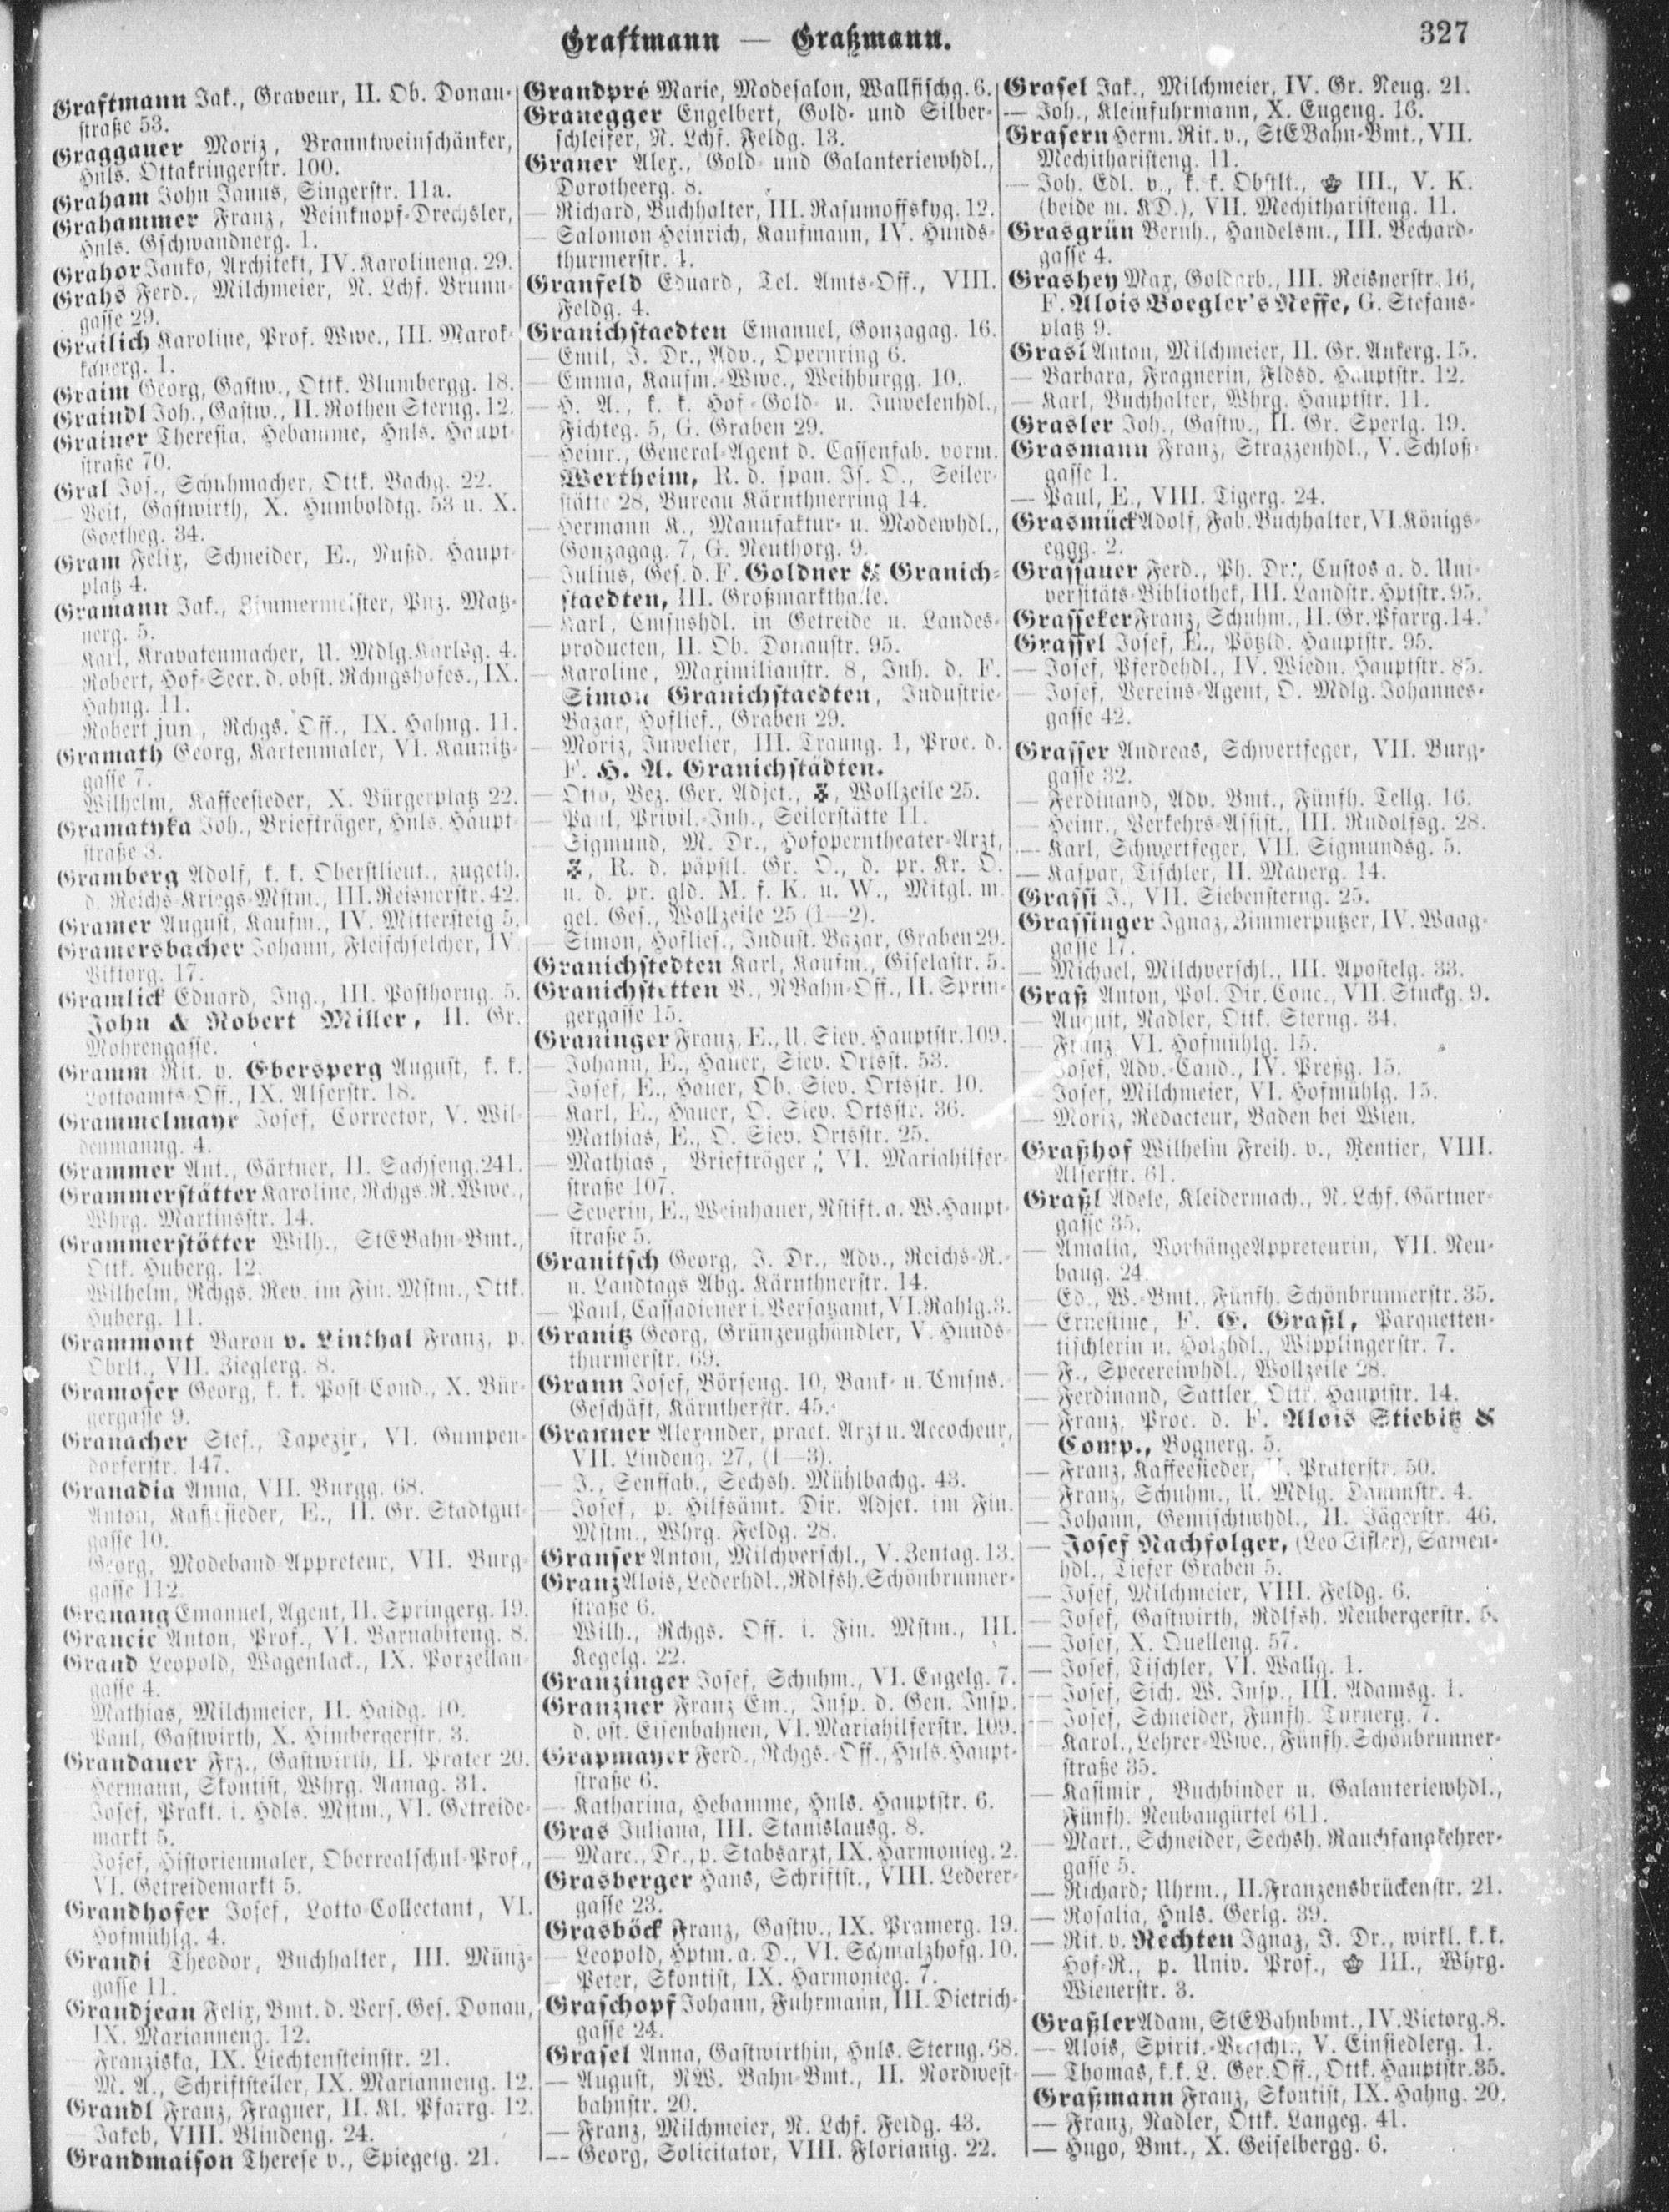 Graftmann — Graßmann.
327
Graftmann Jak., Graveur, II. Ob. Donau-
straße 53.
Graggauer Moriz, Branntweinschänker,
Hnls. Ottakringerstr. 100.
Graham John Janus, Singerstr. 11a.
Grahammer Franz, Beinknopf-Drechsler,
Hnls. Gschwandnerg. 1.
Grahor Janko, Architekt, IV. Karolineng. 29.
Grahs Ferd., Milchmeier, N. Lchf. Brunn-
gasse 29.
Grailich Karoline, Prof. Wwe., III. Marok-
kanerg. 1.
Graim Georg, Gastw., Ottk. Blumbergg. 18.
Graindl Joh., Gastw., II. Rothen Sterng. 12.
Grainer Theresia, Hebamme, Hnls. Haupt-
straße 70.
Gral Jos., Schuhmacher, Ottk. Bachg. 22.
— Veit, Gastwirth, X. Humboldtg. 53 u. X.
Goetheg. 34.
Gram Felix, Schneider, E., Nußd. Haupt-
platz 4.
Gramann Jak., Zimmermeister, Pnz. Matz-
nerg. 5.
— Karl, Kravatenmacher, U. Mdlg. Karlsg. 4.
— Robert, Hof-Secr. d. obst. Rchngshofes., IX.
Hahng. 11.
— Robert jun., Rchgs. Off., IX. Hahng. 11.
Gramath Georg, Kartenmaler, VI. Kaunitz-
gasse 7.
— Wilhelm, Kaffeesieder, X. Bürgerplatz 22.
Gramatyka Joh., Briefträger, Hnls. Haupt-
straße 3.
Gramberg Adolf, k. k. Oberstlieut., zugeth.
d. Reichs-Kriegs-Mstm., III. Reisnerstr. 42.
Gramer August, Kaufm., IV. Mittersteig 5.
Gramersbacher Johann, Fleischselcher, IV.
Viktorg. 17.
Gramlick Eduard, Ing., III. Posthorng. 5.
John & Robert Miller, II. Gr.
Mohrengasse.
Gramm Rit. v. Ebersperg August, k. k.
Lottoamts-Off., IX. Alserstr. 18.
Grammelmayr Josef, Corrector, V. Wil-
denmanng. 4.
Grammer Ant., Gärtner, II. Sachseng. 241.
Grammerstätter Karoline, Rchgs. R. Wwe.,
Whrg. Martinsstr. 14.
Grammerstötter Wilh., StEBahn-Bmt.,
Ottk. Huberg. 12.
— Wilhelm, Rchgs. Rev. im Fin. Mstm., Ottk.
Huberg. 11.
Grammont Baron v. Linthal Franz, p.
Obrlt., VII. Zieglerg. 8.
Gramoser Georg, k. k. Post-Cond., X. Bür-
gergasse 9.
Granacher Stef., Tapezir, VI. Gumpen-
dorferstr. 147.
Granadia Anna, VII. Burgg. 68.
— Anton, Kaffeesieder, E., II. Gr. Stadtgut-
gasse 10.
— Georg, Modeband-Appreteur, VII. Burg-
gasse 112.
Granang Emanuel, Agent, II. Springerg. 19.
Grancic Anton, Prof., VI. Barnabiteng. 8.
Grand Leopold, Wagenlack., IX. Porzellan-
gasse 4.
— Mathias, Milchmeier, II. Haidg. 10.
— Paul, Gastwirth, X. Himbergerstr. 3.
Grandauer Frz., Gastwirth, II. Prater 20.
— Hermann, Skontist, Whrg. Annag. 31.
— Josef, Prakt. i. Hdls. Mstm., VI. Getreide-
markt 5.
— Josef, Historienmaler, Oberrealschul-Prof.,
VI. Getreidemarkt 5.
Grandhofer Josef, Lotto-Collectant, VI.
Hofmühlg. 4.
Grandi Theodor, Buchhalter, III. Münz-
gasse 11.
Grandjean Felix, Bmt. d. Vers. Ges. Donau,
IX. Marianneng. 12.
— Franziska, IX. Liechtensteinstr. 21.
— M. A., Schriftsteller, IX. Marianneng. 12.
Grandl Franz, Fragner, II. Kl. Pfarrg. 12.
— Jakob, VIII. Blindeng. 24.
Grandmaison Therese v., Spiegelg. 21.
Grandpré Marie, Modesalon, Wallfischg. 6.
Granegger Engelbert, Gold- und Silber-
schleifer, N. Lchf. Feldg. 13.
Graner Alex., Gold- und Galanteriewhdl.,
Dorotheerg. 8.
— Richard, Buchhalter, III. Rasumoffskyg. 12.
— Salomon Heinrich, Kaufmann, IV. Hunds-
thurmerstr. 1.
Granfeld Eduard, Tel. Amts-Off., VIII.
Feldg. 4.
Granichstaedten Emanuel, Gonzagag. 16.
— Emil, J. Dr., Adv., Opernring 6.
— Emma, Kaufm.-Wwe., Weihburgg. 10.
— H. A., k. k. Hof-Gold- u. Juwelenhdl.,
Fichteg. 5, G. Graben 29.
— Heinr., General-Agent d. Cassenfab. vorm.
Wertheim, R. d. span. Is. O., Seiler-
stätte 28, Bureau Kärnthnerring 14.
— Hermann K., Manufaktur- u. Modewhdl.,
Gonzagag. 7, G. Neuthorg. 9.
— Julius, Ges. d. F. Goldner & Granich-
staedten, III. Großmarkthalle.
— Karl, Cmsnshdl. in Getreide u. Landes-
producten, II. Ob. Donaustr. 95.
— Karoline, Maximilianstr. 8, Inh. d. F.
Simon Granichstaedten, Industrie-
Bazar, Hoflief., Graben 29.
— Moriz, Juwelier, III. Traung. 1, Proc. d.
F. H. A. Granichstädten.
— Otto, Bez. Ger. Adjct., ✠, Wollzeile 25.
— Paul, Privil.-Inh., Seilerstätte 11.
— Sigmund, M. Dr., Hofoperntheater-Arzt,
✠, R. d. päpstl. Gr. O., d. pr. Kr. O.
u. d. pr. gld. M. f. K. u. W., Mitgl. m.
gel. Ges., Wollzeile 25 (1—2).
— Simon, Hoflief., Indust. Bazar, Graben 29.
Granichstedten Karl, Kaufm., Giselastr. 5.
Granichstetten V., NBahn-Off., II. Sprin-
gergasse 15.
Graninger Franz, E., U. Siev. Hauptstr. 109.
— Johann, E., Hauer, Siev. Ortsst. 53.
— Josef, E., Hauer, Ob. Siev. Ortsstr. 10.
— Karl, E., Hauer, O. Siev. Ortsstr. 36.
— Mathias, E., O. Siev. Ortsstr. 25.
— Mathias, Briefträger, VI. Mariahilfer-
straße 107.
— Severin, E., Weinhauer, Nstift. a. W. Haupt-
straße 5.
Granitsch Georg, J. Dr., Adv., Reichs-R.-
u. Landtags Abg. Kärnthnerstr. 14.
— Paul, Cassadiener i. Versatzamt, VI. Rahlg. 3.
Granitz Georg, Grünzeughändler, V. Hunds-
thurmerstr. 69.
Grann Josef, Börseng. 10, Bank- u. Cmsns.
Geschäft, Kärntherstr. 45.
Granner Alexander, pract. Arzt u. Accocheur,
VII. Lindeng. 27, (1—3).
— J., Senffab., Sechsh. Mühlbachg. 43.
— Josef, p. Hilfsämt. Dir. Adjct. im Fin.
Mstm., Whrg. Feldg. 28.
Granser Anton, Milchverschl., V. Zentag. 13.
Granz Alois, Lederhdl., Rdlfsh. Schönbrunner-
straße 6.
— Wilh., Rchgs. Off. i. Fin. Mstm., III.
Kegelg. 22.
Granzinger Josef, Schuhm., VI. Engelg. 7.
Granzner Franz Em., Insp. d. Gen. Insp.
d. öst. Eisenbahnen, VI. Mariahilferstr. 109.
Grapmayer Ferd., Rchgs.-Off., Hnls. Haupt-
straße 6.
— Katharina, Hebamme, Hnls. Hauptstr. 6.
Gras Juliana, III. Stanislausg. 8.
— Marc., Dr., p. Stabsarzt, IX. Harmonieg. 2.
Grasberger Hans, Schriftst., VIII. Lederer-
gasse 23.
Grasböck Franz, Gastw., IX. Pramerg. 19.
— Leopold, Hptm. a. D., VI. Schmalzhofg. 10.
— Peter, Skontist, IX. Harmonieg. 7.
Graschopf Johann, Fuhrmann, III. Dietrich-
gasse 24.
Grasel Anna, Gastwirthin, Hnls. Sterng. 68.
— August, NW. Bahn-Bmt., II. Nordwest-
bahnstr. 20.
— Franz, Milchmeier, N. Lchf. Feldg. 43.
— Georg, Solicitator, VIII. Florianig. 22.
Grasel Jak., Milchmeier, IV. Gr. Neug. 21.
— Joh., Kleinfuhrmann, X. Eugeng. 16.
Grasern Herm. Rit. v., StEBahn-Bmt., VII.
Mechitharisteng. 11.
— Joh. Edl. v., k. k. Obstlt., ♚ III., V. K.
(beide m. KD.), VII. Mechitharisteng. 11.
Grasgrün Bernh., Handelsm., III. Bechard-
gasse 4.
Grashey Max, Goldarb., III. Reisnerstr. 16,
F. Alois Boegler's Neffe, G. Stefans-
platz 9.
Grasi Anton, Milchmeier, II. Gr. Ankerg. 15.
— Barbara, Fragnerin, Fldsd. Hauptstr. 12.
— Karl, Buchhalter, Whrg. Hauptstr. 11.
Grasler Joh., Gastw., II. Gr. Sperlg. 19.
Grasmann Franz, Strazzenhdl., V. Schloß-
gasse 1.
— Paul, E., VIII. Tigerg. 24.
Grasmück Adolf, Fab. Buchhalter, VI. Königs-
eggg. 2.
Grassauer Ferd., Ph. Dr., Custos a. d. Uni-
versitäts-Bibliothek, III. Landstr. Hptstr. 95.
Grasseker Franz, Schuhm., II. Gr. Pfarrg. 14.
Grassel Josef, E., Pötzld. Hauptstr. 95.
— Josef, Pferdehdl., IV. Wiedn. Hauptstr. 85.
— Josef, Vereins-Agent, O. Mdlg. Johannes-
gasse 42.
Grasser Andreas, Schwertfeger, VII. Burg-
gasse 32.
— Ferdinand, Adv. Bmt., Fünfh. Tellg. 16.
— Heinr., Verkehrs-Assist., III. Rudolfsg. 28.
— Karl, Schwertfeger, VII. Sigmundsg. 5.
— Kaspar, Tischler, II. Mayerg. 14.
Grassi J., VII. Siebensterng. 25.
Grassinger Ignaz, Zimmerputzer, IV. Waag-
gasse 17.
— Michael, Milchverschl., III. Apostelg. 33.
Graß Anton, Pol. Dir. Conc., VII. Stuckg. 9.
— August, Nadler, Ottk. Sterng. 34.
— Franz, VI. Hofmühlg. 15.
— Josef, Adv.-Cand., IV. Preßg. 15.
— Josef, Milchmeier, VI. Hofmühlg. 15.
— Moriz, Redacteur, Baden bei Wien.
Graßhof Wilhelm Freih. v., Rentier, VIII.
Alserstr. 61.
Graßl Adele, Kleidermach., N. Lchf. Gärtner-
gasse 35.
— Amalia, VorhängeAppreteurin, VII. Neu-
baug. 24.
— Ed., W.-Bmt., Fünfh. Schönbrunnerstr. 35.
— Ernestine, F. E. Graßl, Parquetten-
tischlerin u. Holzhdl., Wipplingerstr. 7.
— F., Specereiwhdl., Wollzeile 28.
— Ferdinand, Sattler, Ottk. Hauptstr. 14.
— Franz, Proc. d. F. Alois Stiebitz &
Comp., Bognerg. 5.
— Franz, Kaffeesieder, II. Praterstr. 50.
— Franz, Schuhm., U. Mdlg. Dammstr. 4.
— Johann, Gemischtwhdl., II. Jägerstr. 46.
— Josef Nachfolger, (Leo Eisler), Samen-
hdl., Tiefer Graben 5.
— Josef, Milchmeier, VIII. Feldg. 6.
— Josef, Gastwirth, Rdlfsh. Neubergerstr. 5.
— Josef, X. Quelleng. 57.
— Josef, Tischler, VI. Wallg. 1.
— Josef, Sich. W. Insp., III. Adamsg. 1.
— Josef, Schneider, Fünfh. Turnerg. 7.
— Karol., Lehrer-Wwe., Fünfh. Schönbrunner-
straße 35.
— Kasimir, Buchbinder u. Galanteriewhdl.,
Fünfh. Neubaugürtel 611.
— Mart., Schneider, Sechsh. Rauchfangkehrer-
gasse 5.
— Richard, Uhrm., II. Franzensbrückenstr. 21.
— Rosalia, Hnls. Gerlg. 39.
— Rit. v. Rechten Ignaz, J. Dr., wirkl. k. k.
Hof-R., p. Univ. Prof., ♚ III., Whrg.
Wienerstr. 3.
Graßler Adam, StEBahnbmt., IV. Victorg. 8.
— Alois, Spirit.-Verschl., V. Einsiedlerg. 1.
— Thomas, k. k. L. Ger. Off., Ottk. Hauptstr. 35.
Graßmann Franz, Skontist, IX. Hahng. 20.
— Franz, Nadler, Ottk. Langeg. 41.
— Hugo, Bmt., X. Geiselbergg. 6.